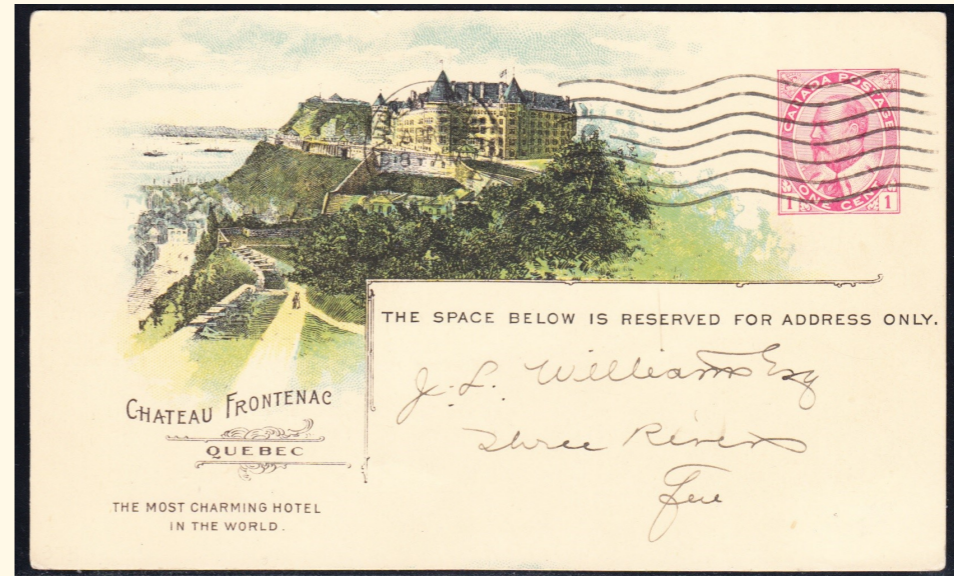 CANADA POSTAGE
ONE CENT
1 1
THE SPACE BELOW IS RESERVED FOR ADDRESS ONLY.
J. L. Williams Esq
Three Rivers
CHATEAU FRONTENAC
QUEBEC
THE MOST CHARMING HOTEL
IN THE WORLD.